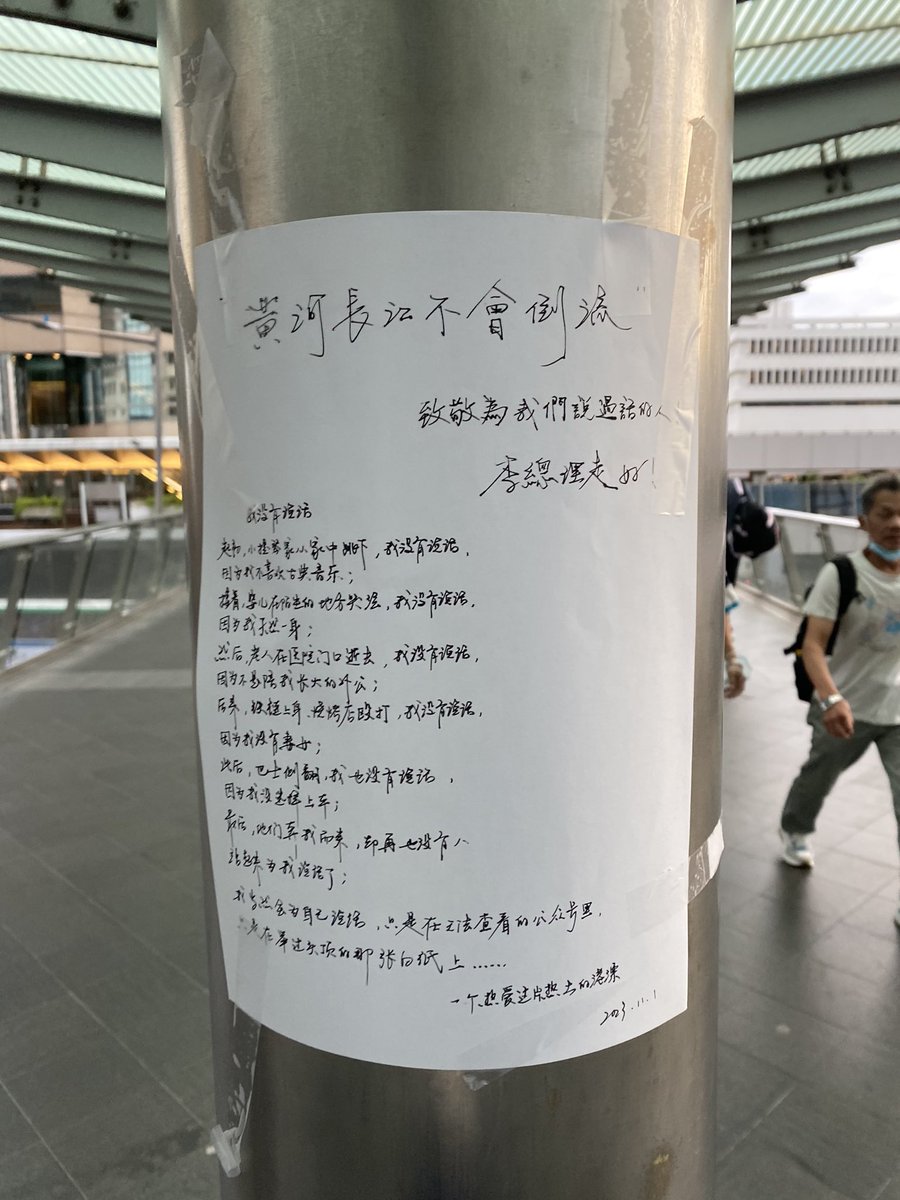 “黃河長江不會倒流”
致敬為我們說過話的人
李總理走好！
我没有说话
起初,小提琴家从家中跳下,我没有说话,
因为我不喜欢古典音乐；
接着,婴儿在隔离的地方失温,我没有说话,
因为我孑然一身；
然后,老人在医院门口逝去,我没有说话,
因为不是陪我长大的外公；
后来,铁链上身、烧烤店殴打,我没有说话,
因为我没有妻女；
此后,巴士侧翻,我也没有说话,
因为我没选择上车；
最后,他们奔我而来,却再也没有人
站起来为我说话了；
我当然会为自己说话,只是在无法查看的公众号里,
只是在举过头顶的那张白纸上……
一个热爱这片热土的港漂
2023.11.1